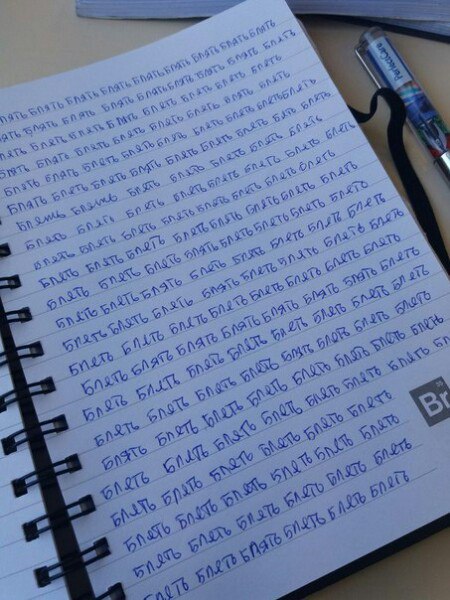 Блять Блять Блять Блять Блять Блять Блять
Блять Блять Блять Блять Блять Блять Блять
Блять Блять Блять Блять Блять Блять Блять
Блять Блять Блять Блять Блять Блять Блять
Блять Блять Блять Блять Блять Блять Блять Блять
Блять Блять Блять Блять Блять Блять Блять Блять
Блять Блять Блять Блять Блять Блять Блять
Блять Блять Блять Блять Блять Блять Блять
Блять Блять Блять Блять Блять Блять Блять
Блять Блять Блять Блять Блять Блять Блять
Блять Блять Блять Блять Блять Блять Блять
Блять Блять Блять Блять Блять Блять Блять
Блять Блять Блять Блять Блять Блять Блять Блять
Блять Блять Блять Блять Блять Блять Блять Блять
Блять Блять Блять Блять Блять Блять Блять
Блять Блять Блять Блять Блять Блять Блять
Блять Блять Блять Блять Блять Блять Блять Блять
Блять Блять Блять Блять Блять Блять Блять Бл
Блять Блять Блять Блять Блять Блять
Блять Блять Блять Блять Блять Блять
Блять Блять Блять Блять Блять Блять
Блять Блять Блять Блять Блять Блять
Br